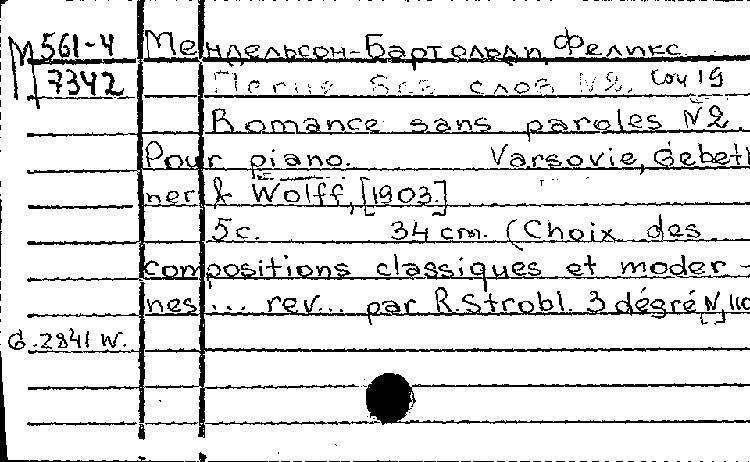 М 561-4 Мендельсон-Бартольди, Феликс
7342 Песня без слов №2. Соч 19
Romance sans paroles №2.
Pour piano. Varsovie, Gebeth
ner & Wolff, [1903.]
5с. 34 cm. (Choix des
compositions classiques et moder-
nes... rev... par R. Strobl. 3 dégré, N, 110
G. 2841 W.